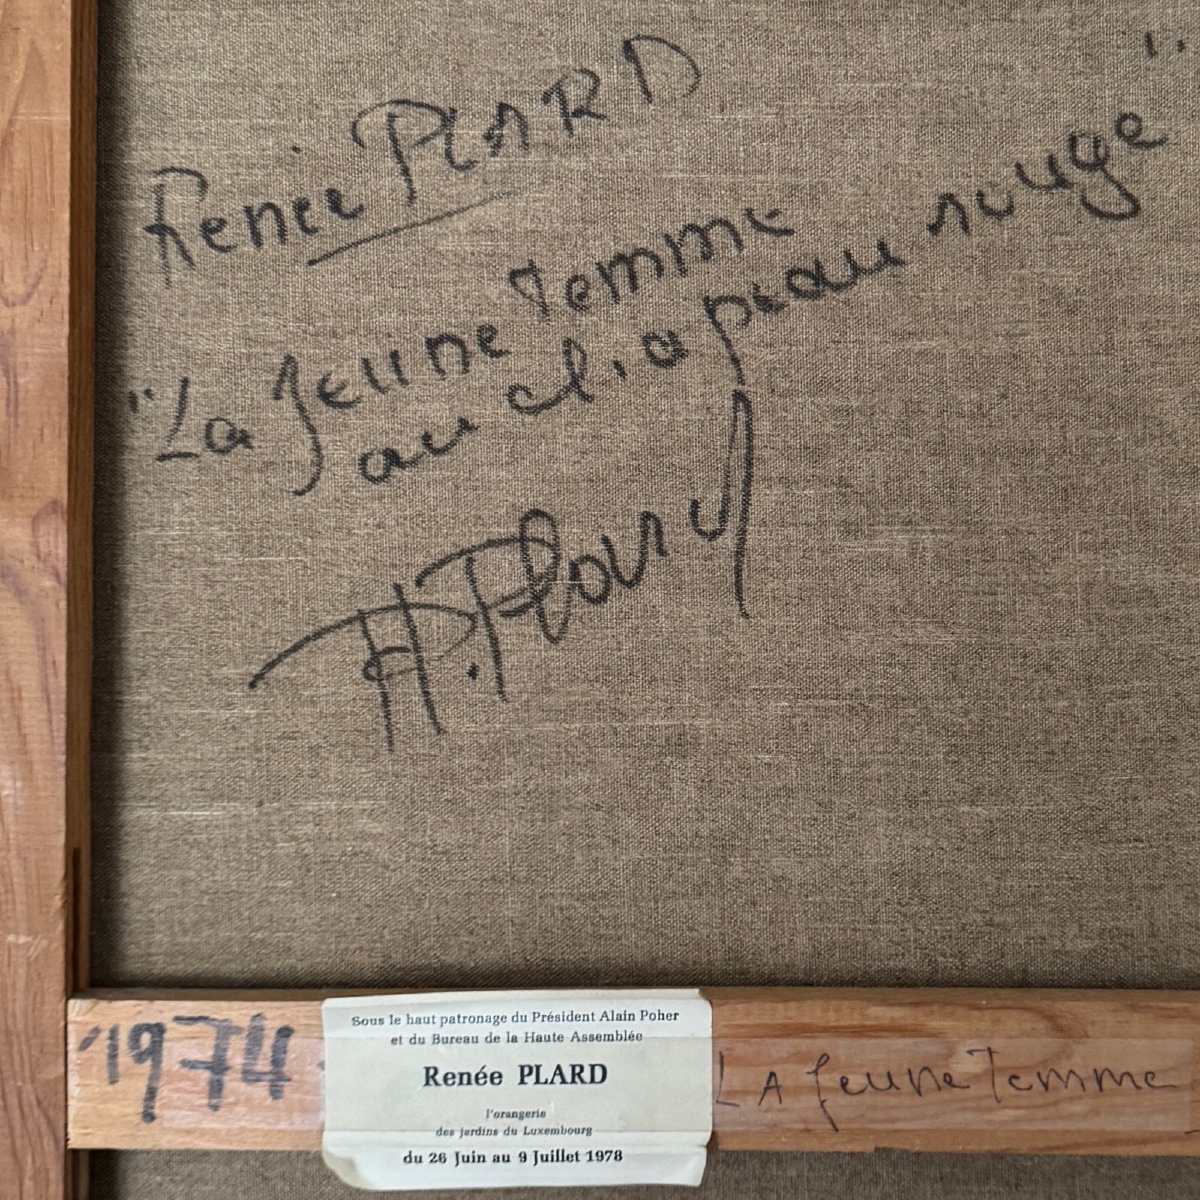 Renée PLARD
"La Jeune Femme
au chapeau rouge"
R. Plard
1974.
Sous le haut patronage du Président Alain Poher
et du Bureau de la Haute Assemblée
Renée PLARD
l'orangerie
des jardins du Luxembourg
du 26 Juin au 9 Juillet 1978
LA Jeune Femme